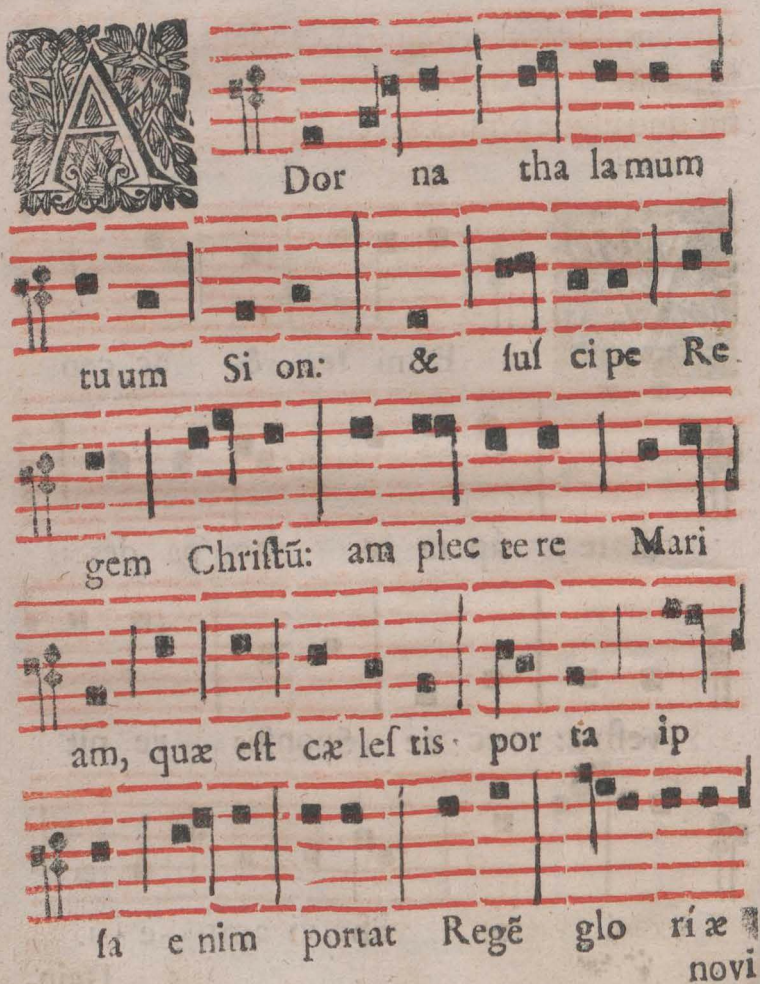 A Dor na tha la mum
tu um Si on: & ſuſ ci pe Re
gem Chriſtũ: am plec te re Mari
am, quæ eſt cæ leſ tis por ta ip
ſa e nim portat Regẽ glo rí æ
novi